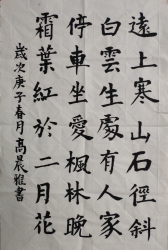 遠上寒山石徑斜
白雲生處有人家
停車坐愛楓林晚
霜葉紅於二月花
歲次庚子春月高晨雅書